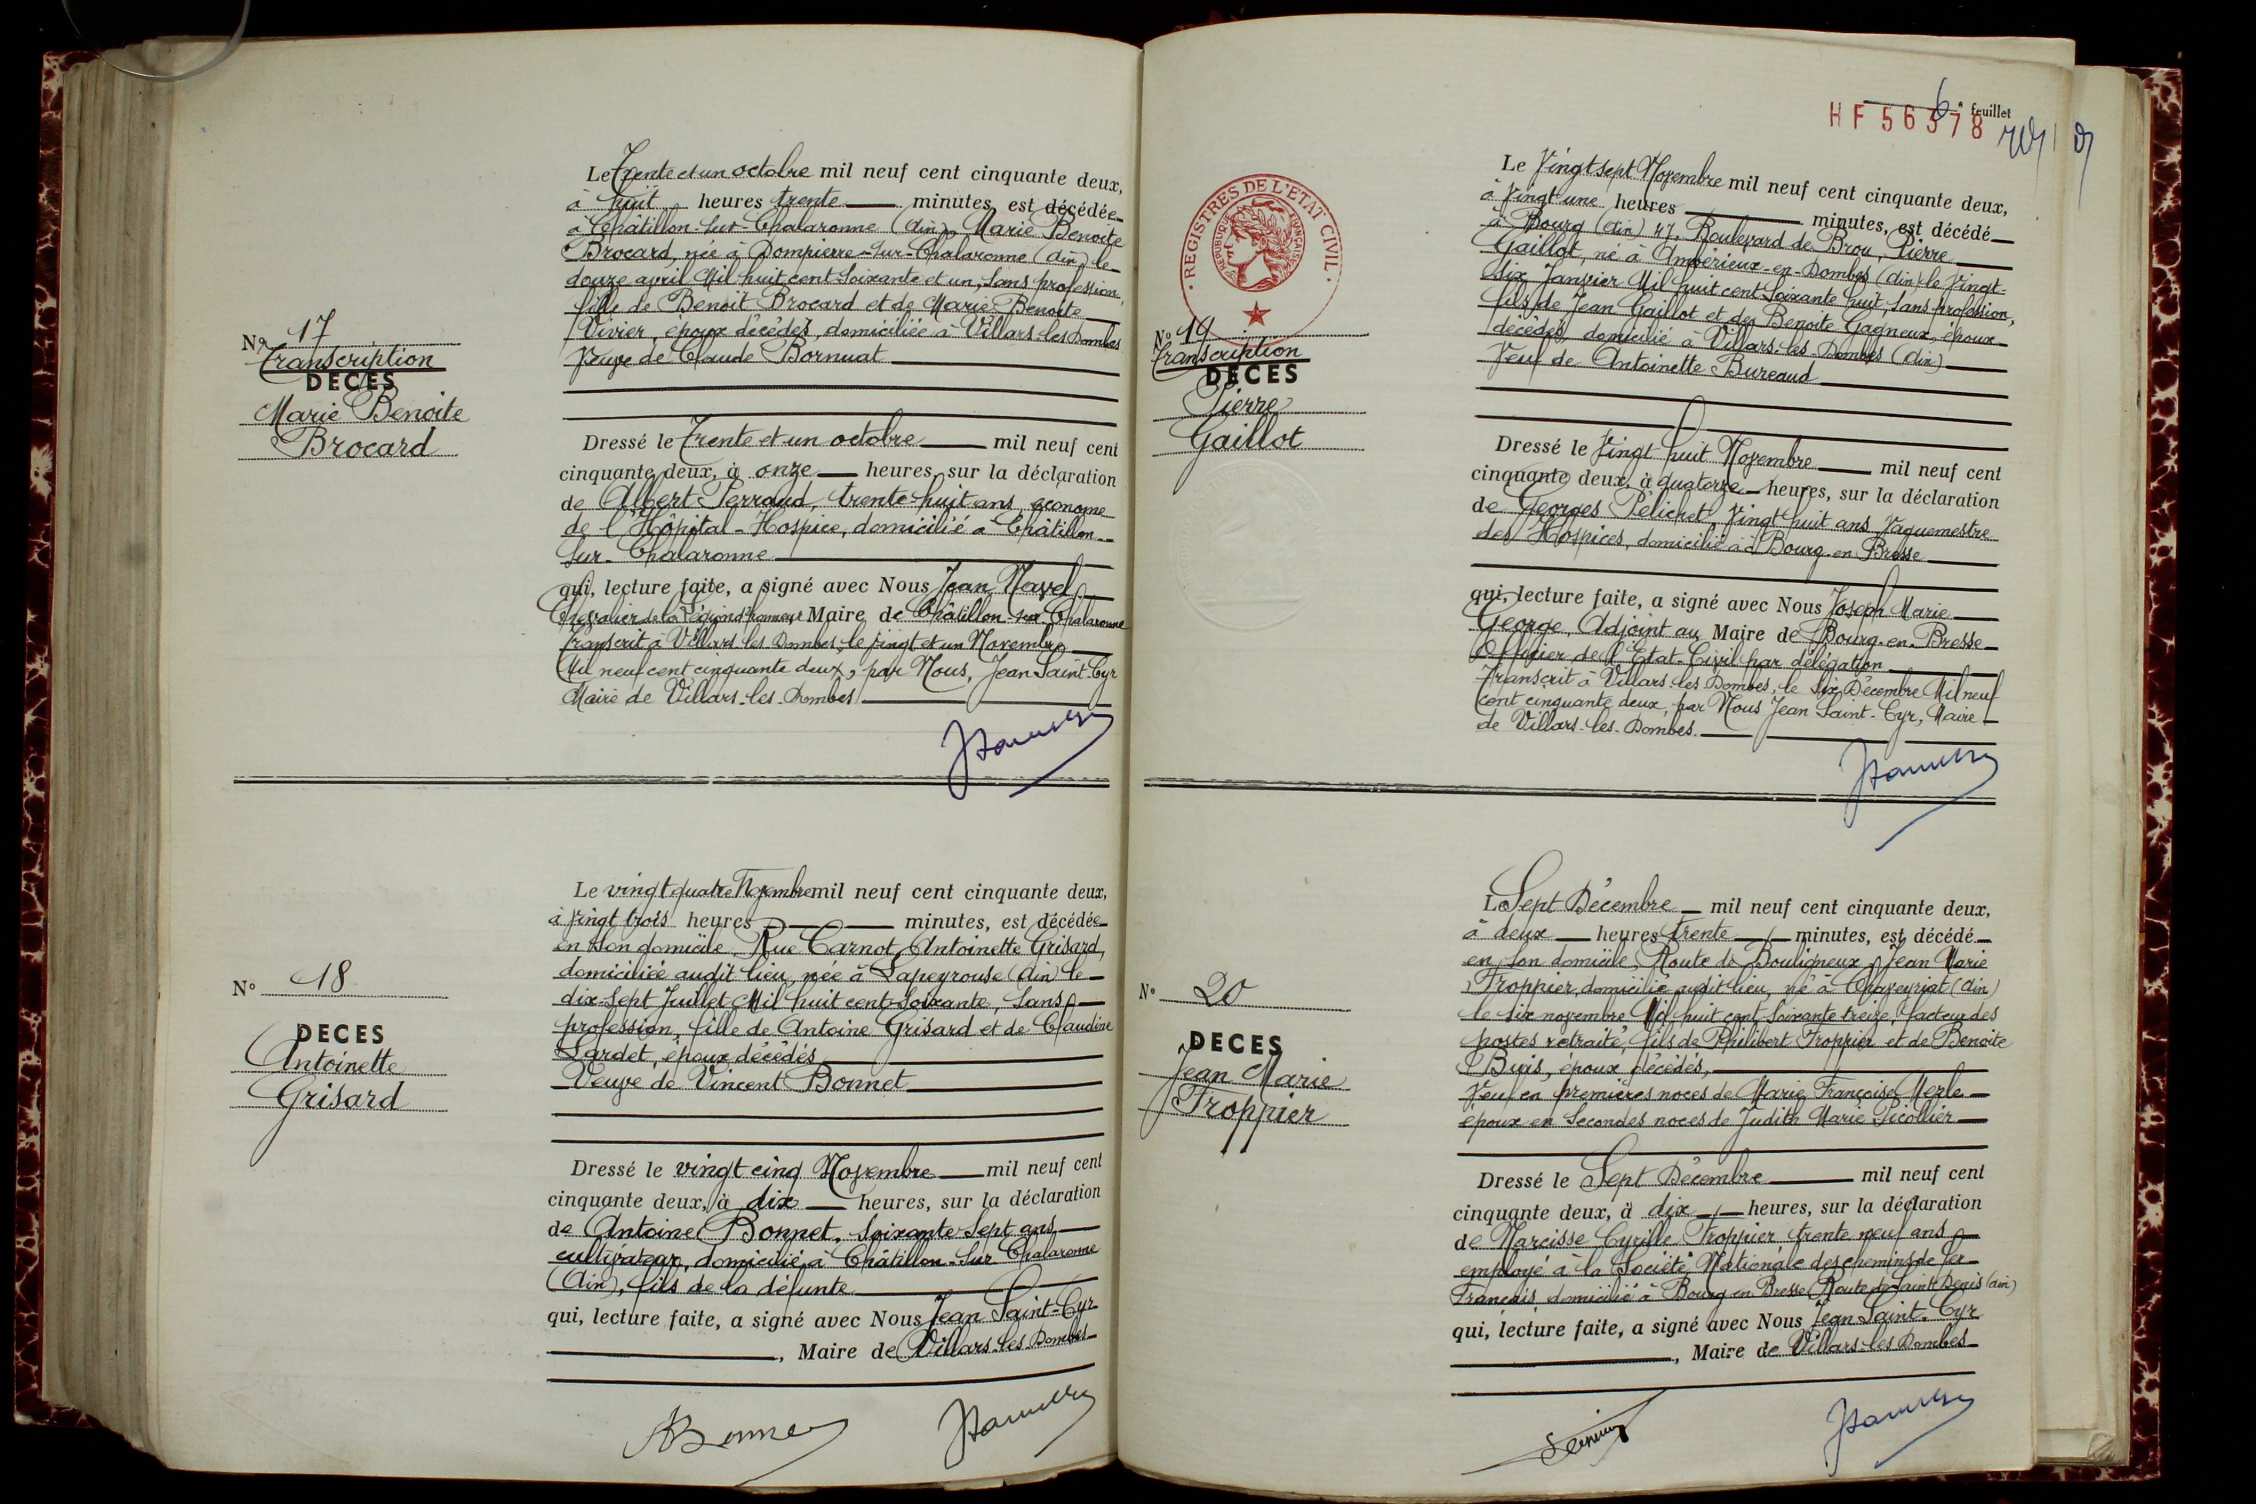 Le Trente et un octobre mil neuf cent cinquante deux,
à huit heures trente minutes, est décédée
à Châtillon-sur-Chalaronne (Ain) Marie Benoite
Brocard, née à Dompierre-sur-Chalaronne (Ain) le
douze avril Mil huit cent soixante et un, sans profession,
fille de Benoit Brocard et de Marie Benoite
Vivier, époux décédés, domiciliée à Villars-les-Dombes
Veuve de Claude Bornuat
No 17
Transcription
DECES
Marie Benoite
Brocard
Dressé le Trente et un octobre mil neuf cent
cinquante deux, à onze heures, sur la déclaration
de Albert Perraud, trente huit ans, économe
de l'Hôpital-Hospice, domicilié à Châtillon-
sur-Chalaronne
qui, lecture faite, a signé avec Nous Jean Navel
Chevalier de la Légion d'honneur Maire de Châtillon-sur-Chalaronne
Transcrit à Villars-les-Dombes, le vingt et un Novembre
Mil neuf cent cinquante deux, par Nous, Jean Saint-Cyr
Maire de Villars-les-Dombes
Le vingt quatre Novembre mil neuf cent cinquante deux,
à vingt trois heures minutes, est décédée
en son domicile, Rue Carnot, Antoinette Grisard,
domiciliée audit lieu, née à Lapeyrouse (Ain) le
dix-sept Juillet Mil huit cent soixante, sans
profession, fille de Antoine Grisard et de Claudine
Lardet, époux décédés
Veuve de Vincent Bonnet
No 18
DECES
Antoinette
Grisard
Dressé le vingt cinq Novembre mil neuf cent
cinquante deux, à dix heures, sur la déclaration
de Antoine Bonnet, soixante sept ans
cultivateur, domicilié à Châtillon-sur-Chalaronne
(Ain), fils de la défunte
qui, lecture faite, a signé avec Nous Jean Saint-Cyr
, Maire de Villars-les-Dombes
ABonnet
6e feuillet
HF 56378
REGISTRES DE L'ETAT CIVIL
REPUBLIQUE FRANCAISE
Le Vingt sept Novembre mil neuf cent cinquante deux,
à vingt une heures minutes, est décédé
à Bourg (Ain) 47, Boulevard de Brou, Pierre
Gaillot, né à Ambérieux-en-Dombes (Ain) le vingt-
dix Janvier Mil huit cent soixante huit, sans profession,
fils de Jean Gaillot et de Benoite Gagneux, époux
décédés, domicilié à Villars-les-Dombes (Ain)
Veuf de Antoinette Bureaud
No 19
Transcription
DECES
Pierre
Gaillot
Dressé le Vingt huit Novembre mil neuf cent
cinquante deux, à quatorze heures, sur la déclaration
de Georges Pélichet, vingt huit ans, vaguemestre
des Hospices, domicilié à Bourg-en-Bresse
qui, lecture faite, a signé avec Nous Joseph Marie
George, Adjoint au Maire de Bourg-en-Bresse
Officier de l'Etat-Civil par délégation
Transcrit à Villars-les-Dombes, le Six Décembre Mil neuf
cent cinquante deux, par Nous Jean Saint-Cyr, Maire
de Villars-les-Dombes
Le Sept Décembre mil neuf cent cinquante deux,
à deux heures trente minutes, est décédé
en son domicile, Route de Bouligneux, Jean Marie
Troppier, domicilié audit lieu, né à Chaveyriat (Ain)
le six novembre Mil huit cent soixante treize, facteur des
postes retraité, fils de Philibert Troppier et de Benoite
Buis, époux décédés,
Veuf en premières noces de Marie Françoise Merle
époux en secondes noces de Judith Marie Picollier
No 20
DECES
Jean Marie
Troppier
Dressé le Sept Décembre mil neuf cent
cinquante deux, à dix heures, sur la déclaration
de Narcisse Cyrille Troppier trente neuf ans
employé à la Société Nationale des chemins de fer
Français, domicilié à Bourg en Bresse Route de Saint Denis (ain)
qui, lecture faite, a signé avec Nous Jean Saint-Cyr
, Maire de Villars-les-Dombes